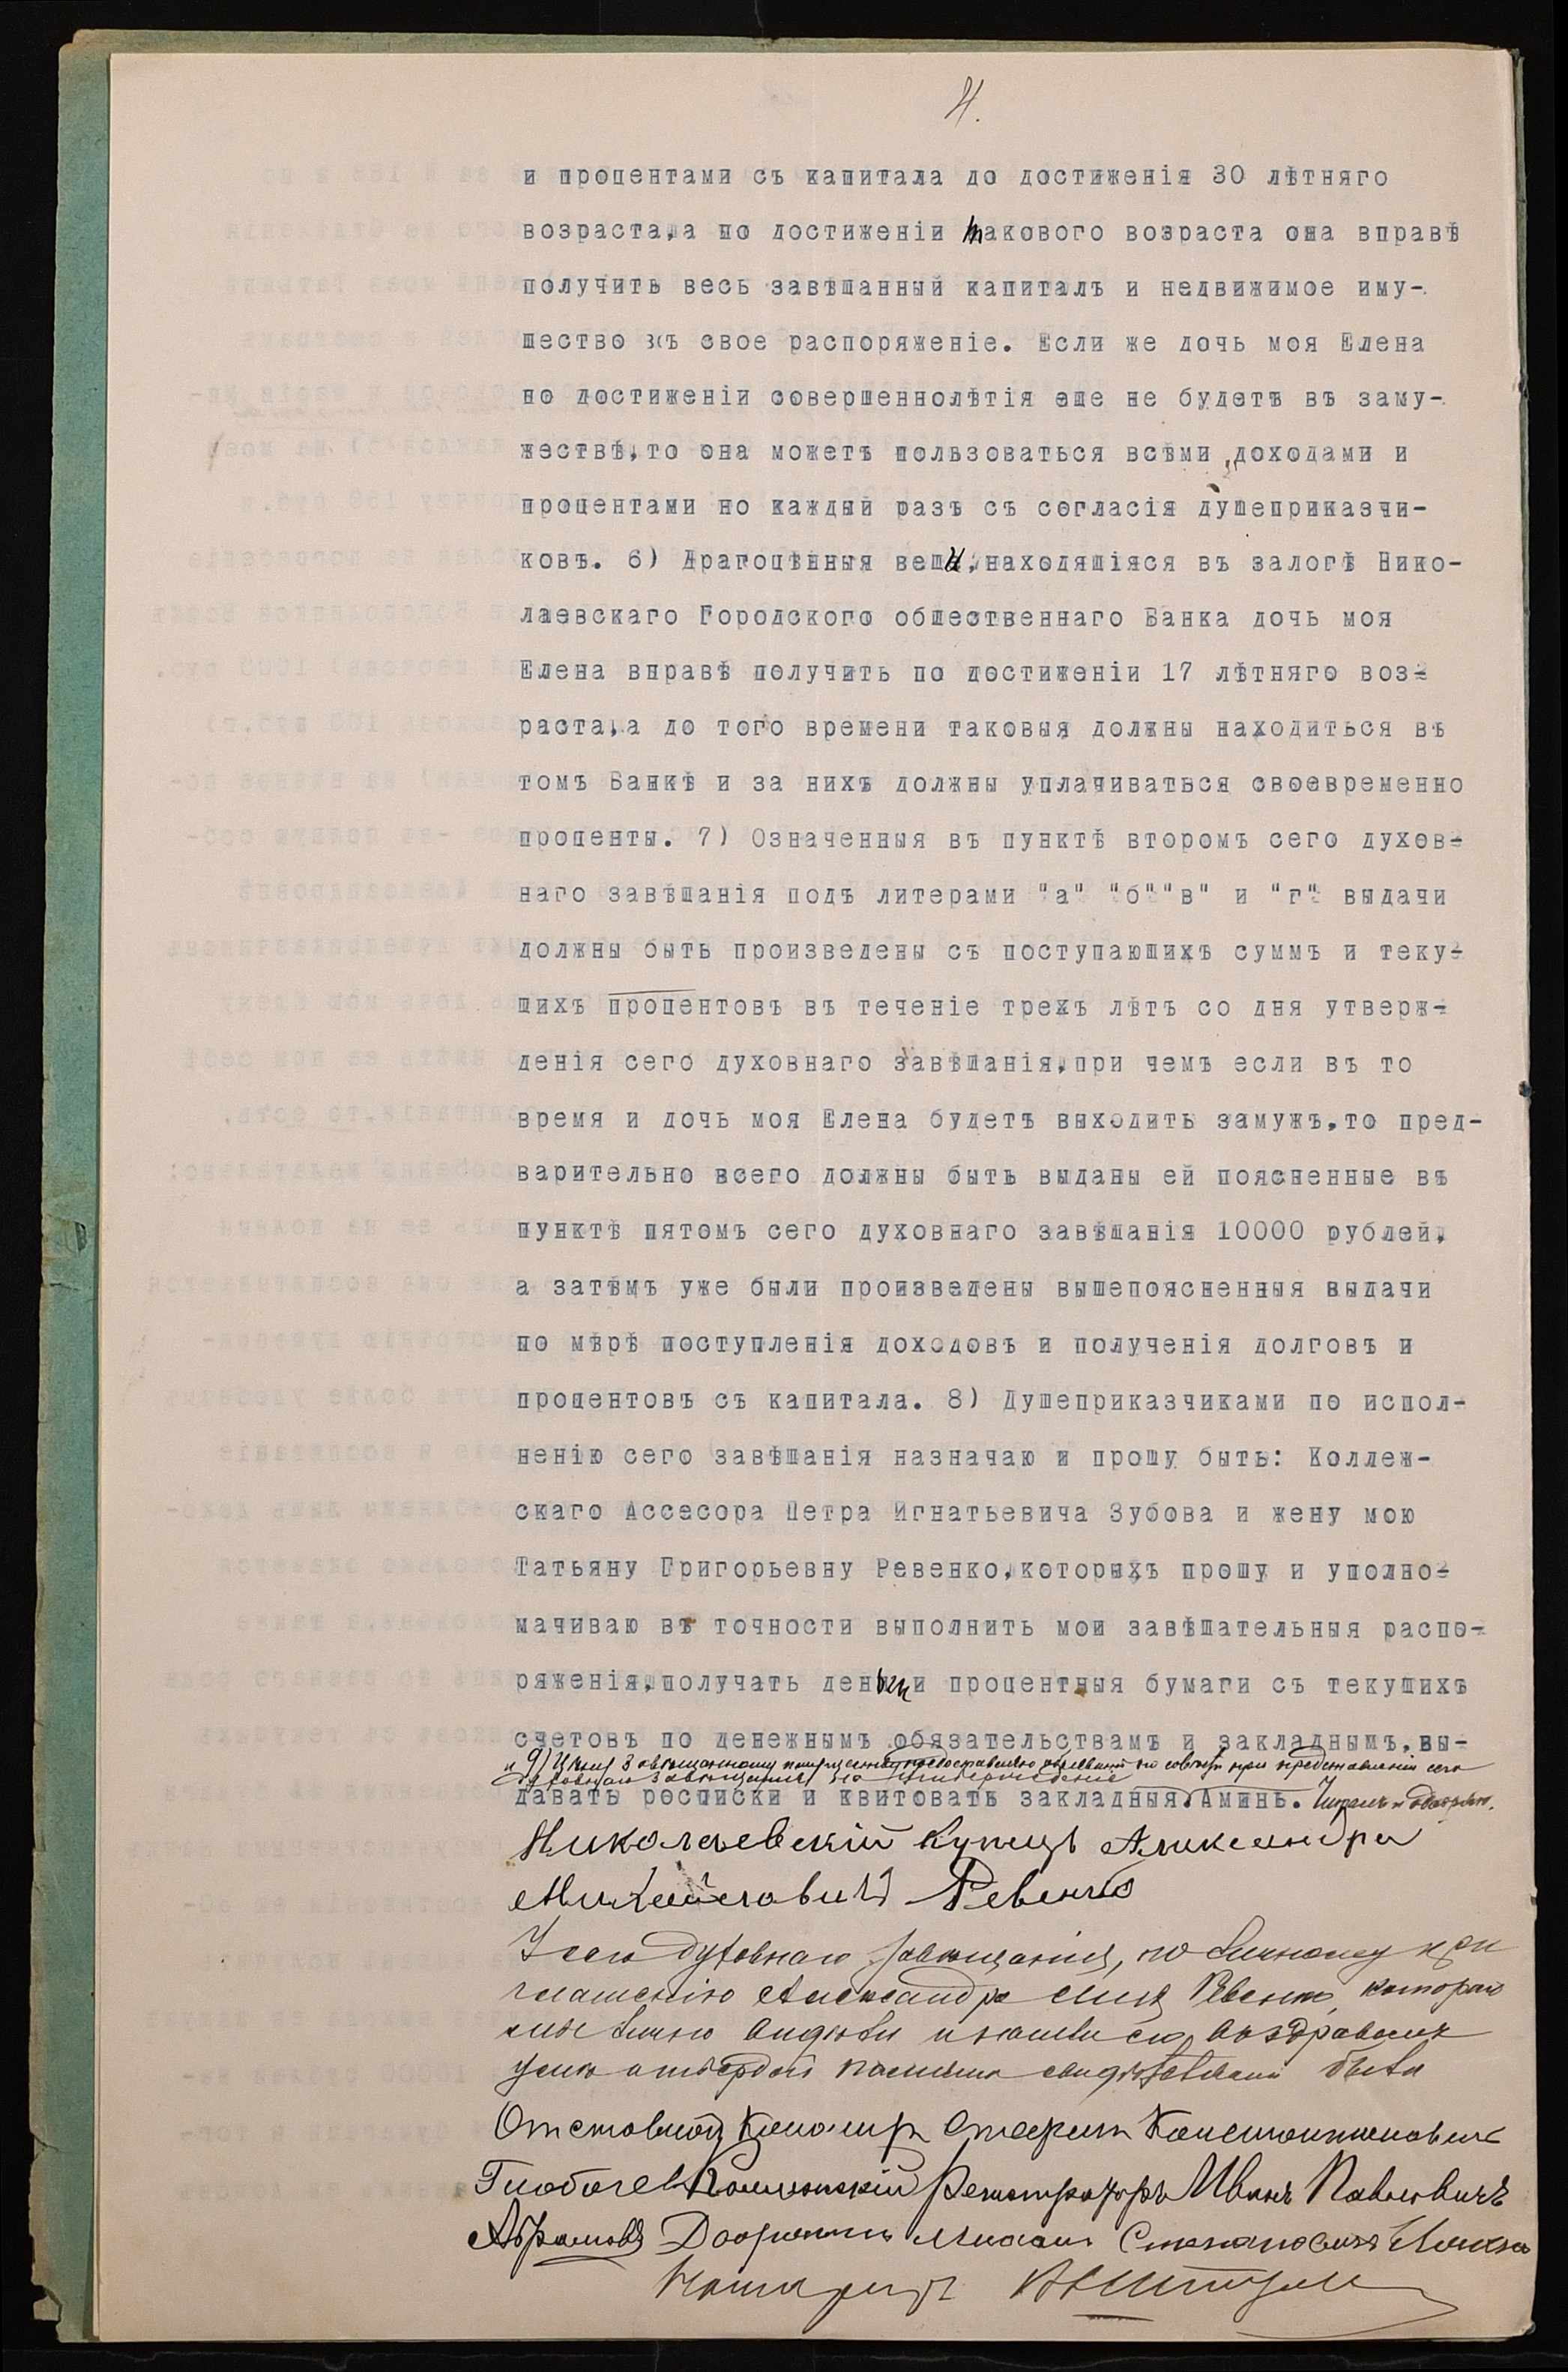 4.
и процентами съ капитала до достиженія 30 лѣтняго
возраста,а по достиженіи такового возраста она вправѣ
получить весь завѣщанный капиталъ и недвижимое иму-
щество въ свое распоряженіе. Если же дочь моя Елена
по достиженіи совершеннолѣтія еще не будетъ въ заму-
жествѣ,то она можетъ пользоваться всѣми доходами и
процентами но каждый разъ съ согласія душеприказчи-
ковъ. 6) Драгоцѣнныя вещи,находящіяся въ залогѣ Нико-
лаевскаго Городского общественнаго Банка дочь моя
Елена вправѣ получить по достиженіи 17 лѣтняго воз-
раста,а до того времени таковыя должны находиться въ
томъ Банкѣ и за нихъ должны уплачиваться своевременно
проценты. 7) Означенныя въ пунктѣ второмъ сего духов-
наго завѣщанія подъ литерами "а" "б""в" и "г" выдачи
должны быть произведены съ поступающихъ суммъ и теку-
щихъ процентовъ въ теченіе трехъ лѣтъ со дня утверж-
денія сего духовнаго завѣщанія,при чемъ если въ то
время и дочь моя Елена будетъ выходить замужъ,то пред-
варительно всего должны быть выданы ей поясненные въ
пунктѣ пятомъ сего духовнаго завѣщанія 10000 рублей,
а затѣмъ уже были произведены вышепоясненныя выдачи
по мѣрѣ поступленія доходовъ и полученія долговъ и
процентовъ съ капитала. 8) Душеприказчиками по испол-
ненію сего завѣщанія назначаю и прошу быть: Коллеж-
скаго Ассесора Петра Игнатьевича Зубова и жену мою
Татьяну Григорьевну Ревенко,которыхъ прошу и уполно-
мачиваю въ точности выполнить мои завѣщательныя распо-
ряженія,получать деньги и процентныя бумаги съ текущихъ
счетовъ по денежнымъ обязательствамъ и закладнымъ,вы-
и 9) Цѣну завѣщанному имуществу предоставляю объявить по совѣсти при представленіи сего
духовнаго завѣщанія на утвержденіе
давать росписки и квитовать закладныя.Аминь.
Николаевскій Купецъ Александръ
Михайловичъ Ревенко
У сего духовнаго завѣщанія, по личному при
глашенію Александра Ревенко, котораго
мы лично видѣли и нашли въ здравомъ
умѣ и твердой памяти свидѣтелями были
Отставной Константиновичъ
Регистраторъ Иванъ Павловичъ
Абрамовъ Дворянинъ Степановичъ
Нотаріусъ